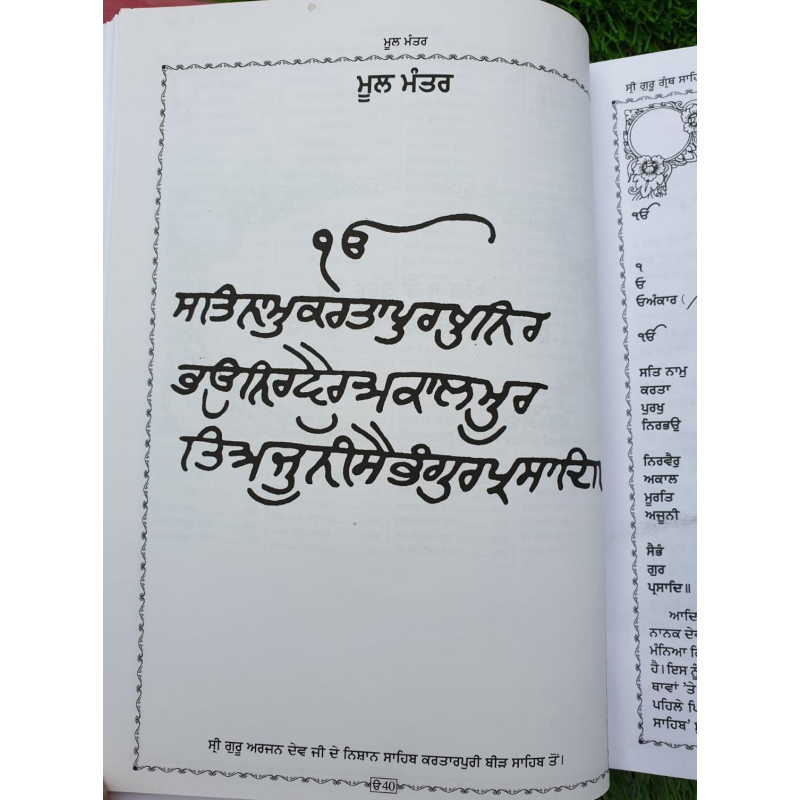 ਮੂਲ ਮੰਤਰ
ਮੂਲ ਮੰਤਰ
ੴ
ਸਤਿਨਾਮੁਕਰਤਾਪੁਰਖੁਨਿਰ
ਭਉਨਿਰਵੈਰੁਅਕਾਲਮੂਰ
ਤਿਅਜੂਨੀਸੈਭੰਗੁਰਪ੍ਰਸਾਦਿ॥
ਸ੍ਰੀ ਗੁਰੂ ਅਰਜਨ ਦੇਵ ਜੀ ਦੇ ਨਿਸ਼ਾਨ ਸਾਹਿਬ ਕਰਤਾਰਪੁਰੀ ਬੀੜ ਸਾਹਿਬ ਤੋਂ।
ੳ40
ਸ੍ਰੀ ਗੁਰੂ ਗ੍ਰੰਥ
ੴ
੧
ਓ
ਓਅੰਕਾਰ (
ੴ
ਸਤਿ ਨਾਮੁ
ਕਰਤਾ
ਪੁਰਖੁ
ਨਿਰਭਉ
ਨਿਰਵੈਰੁ
ਅਕਾਲ
ਮੂਰਤਿ
ਅਜੂਨੀ
ਸੈਭੰ
ਗੁਰ
ਪ੍ਰਸਾਦਿ॥
ਆਦਿ
ਨਾਨਕ ਦੇਵ
ਮੰਨਿਆ
ਹੈ।ਇਸ ਨੂੰ
ਥਾਵਾਂ 'ਤੇ
ਪਹਿਲੇ
ਸਾਹਿਬ'